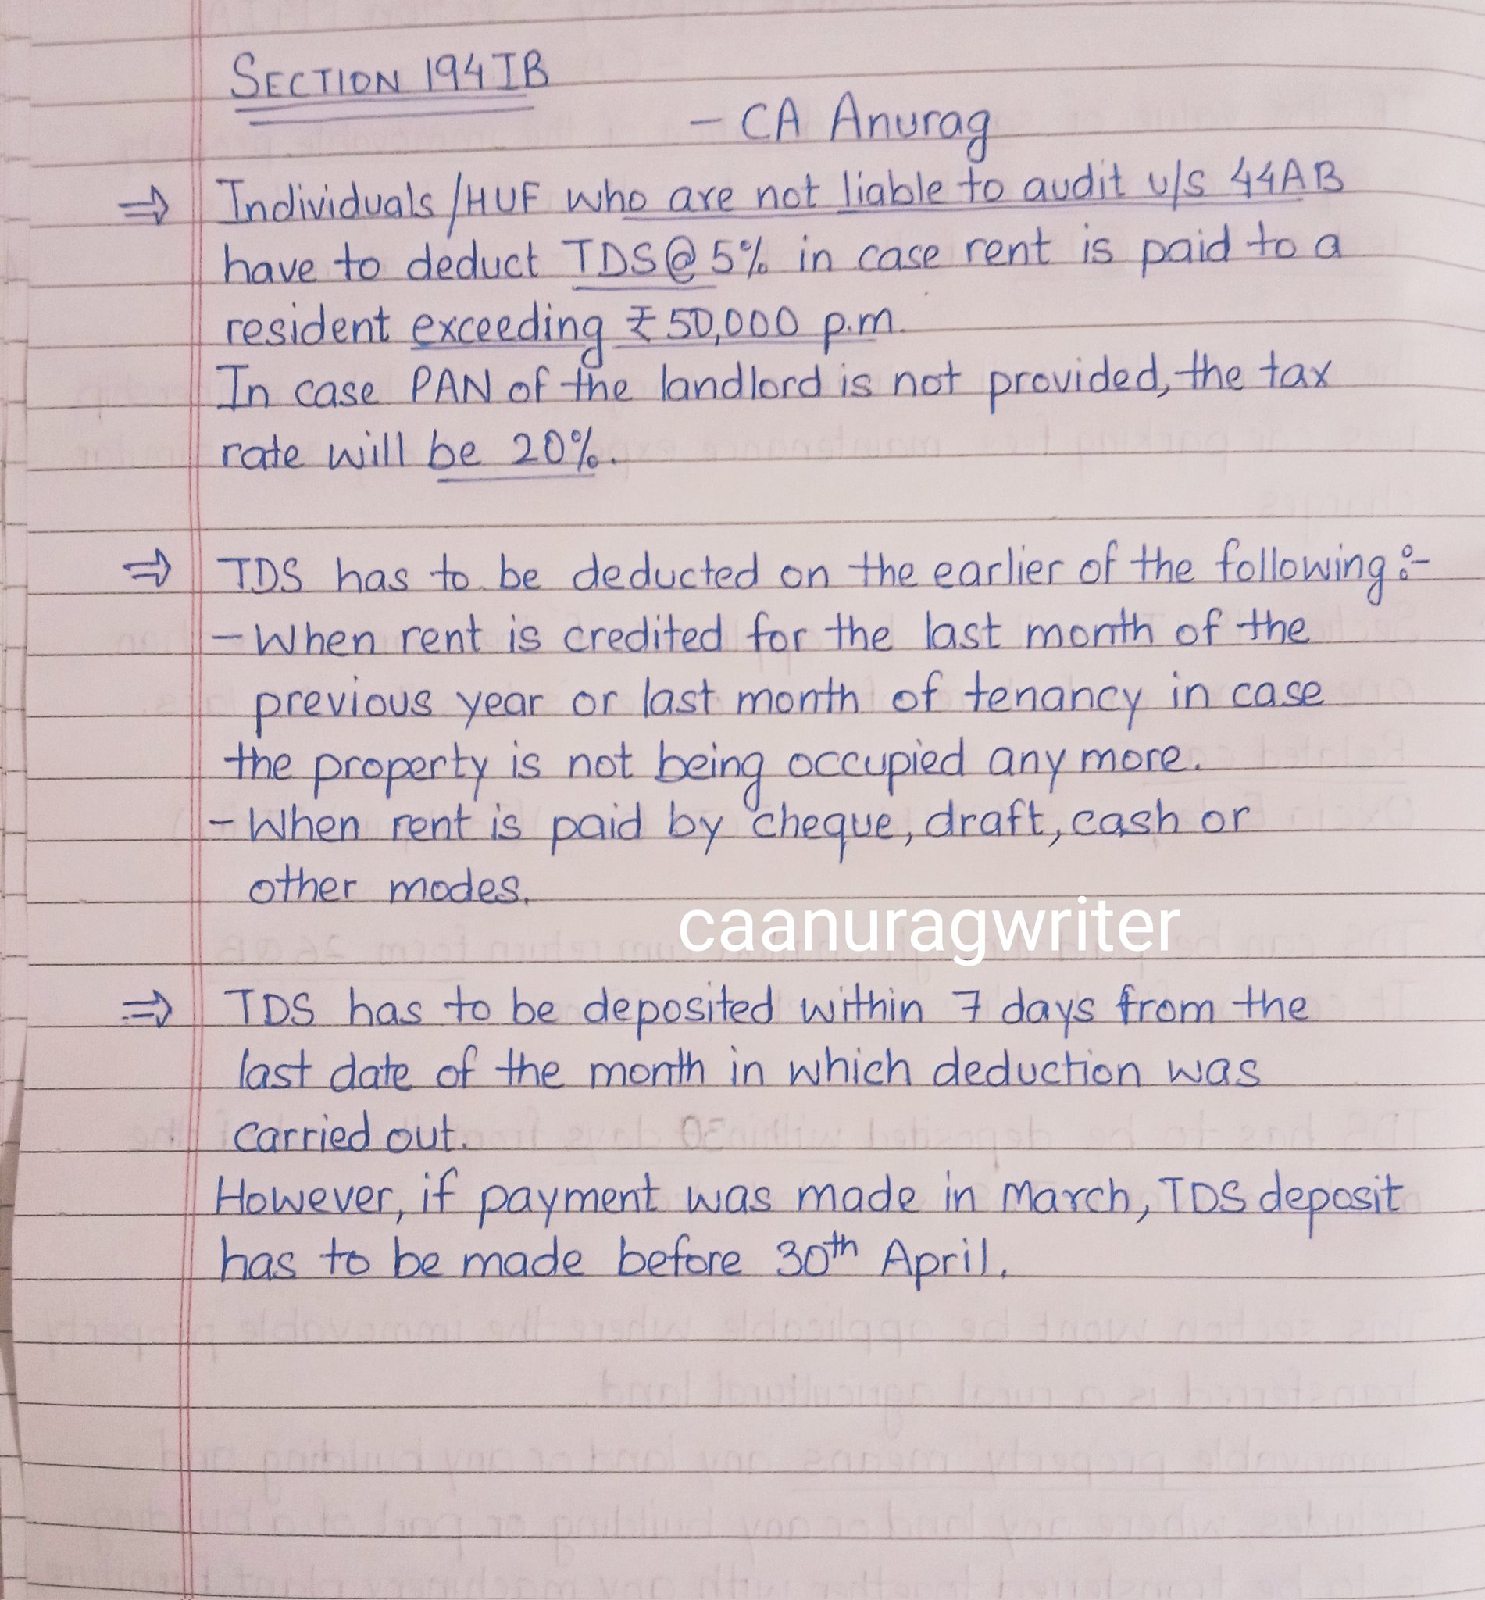 SECTION 194IB
- CA Anurag
⇒ Individuals/HUF who are not liable to audit u/s 44AB
have to deduct TDS@5% in case rent is paid to a
resident exceeding ₹50,000 p.m.
In case PAN of the landlord is not provided, the tax
rate will be 20%.
⇒ TDS has to be deducted on the earlier of the following:-
- When rent is credited for the last month of the
previous year or last month of tenancy in case
the property is not being occupied any more.
- When rent is paid by cheque, draft, cash or
other modes.
caanuragwriter
⇒ TDS has to be deposited within 7 days from the
last date of the month in which deduction was
carried out.
However, if payment was made in March, TDS deposit
has to be made before 30th April.